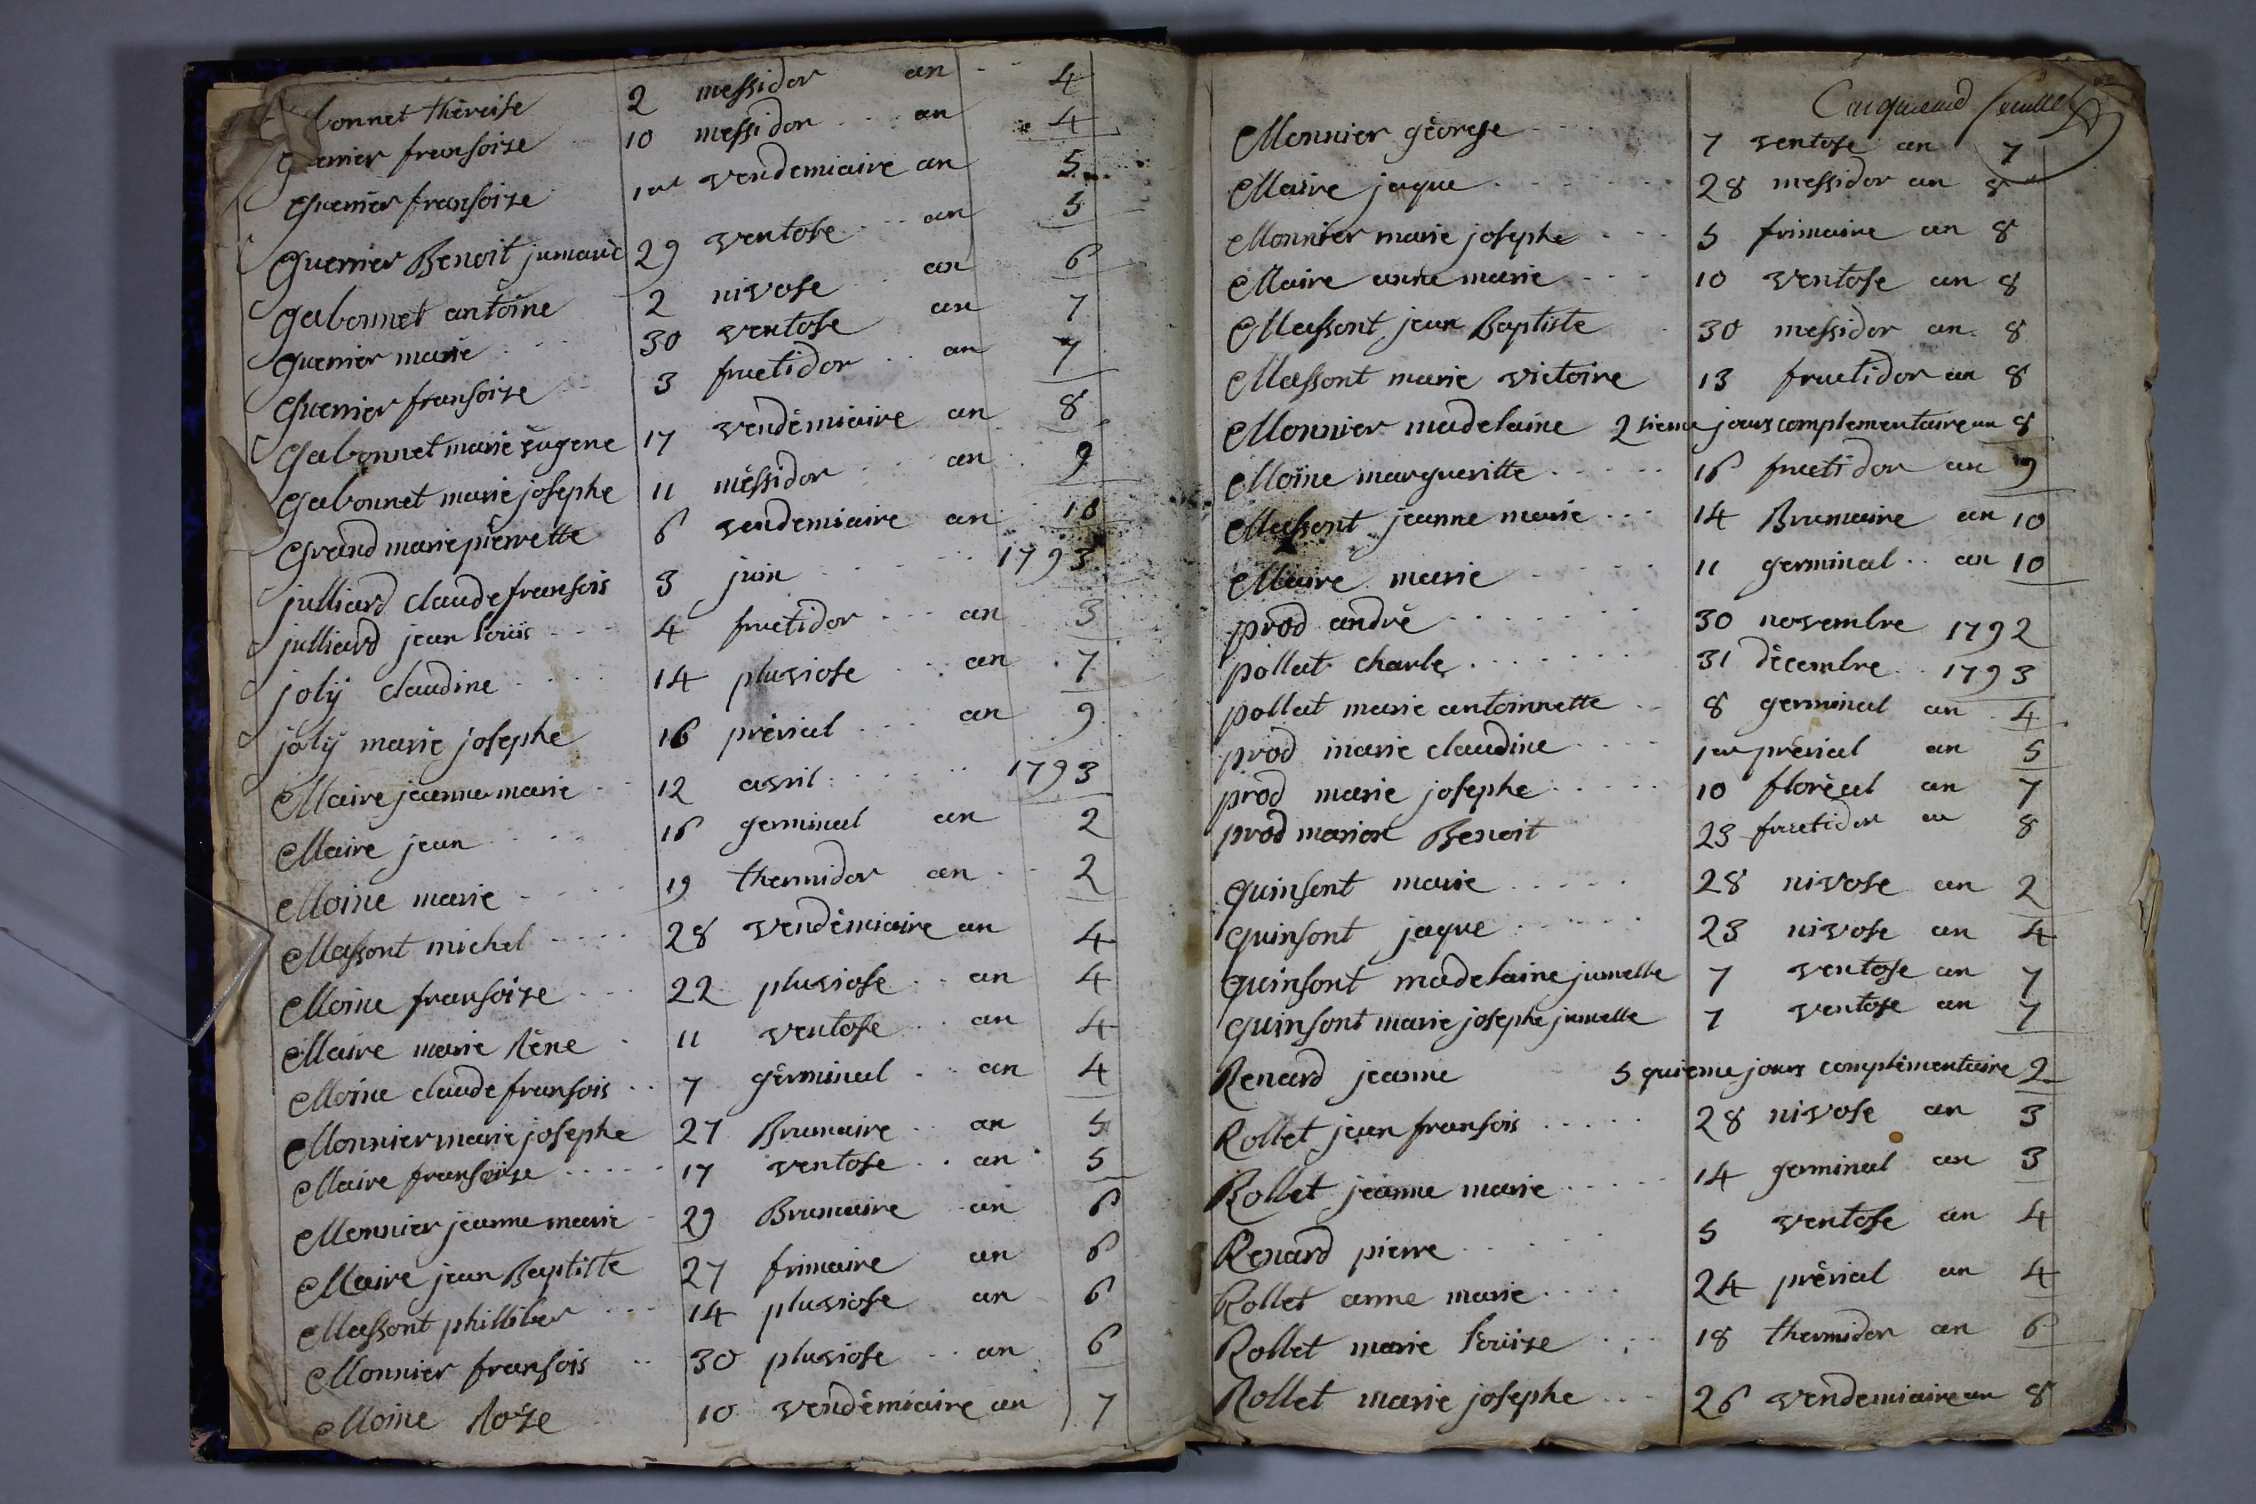 bonnet théreise 2 messidor an 4
guerrier fransoize 10 messidor an 4
guerrier fransoize 1er vendemiaire an 5
guerrier Benoit jumaud 29 ventose an 5
gabonnet antoine 2 nivose an 6
guerrier marie 30 ventose an 7
guerrier fransoize 3 fructidor an 7
gabonnet marie éugene 17 vendémiaire an 8
gabonnet marie josephe 11 méssidor an 9
grand marie pierrette 6 vendemiaire an 10
julliard claude fransois 3 juin 1793
julliard jean louis 4 fructidor an 3
jolÿ claudine 14 pluviose an 7
jolÿ marie josephe 16 prérial an 9
Maire jeanne marie 12 avril 1793
Maire jean 16 germinal an 2
Moine marie 19 thermidor an 2
Massont michel 28 vendémiaire an 4
Moine fransoize 22 pluviose an 4
Maire marie Réne 11 ventose an 4
Moine claude fransois 7 gérminal an 4
Monnier marie josephe 27 Brumaire an 5
Maire fransoize 17 ventose an 5
Monnier jeanne marie 29 Brumaire an 6
Maire jean Baptiste 27 frimaire an 6
Massont philliber 14 pluviose an 6
Monnier fransois 30 pluviose an 6
Moine Roze 10 vendémiaire an 7
Monnier géorge 7 ventose an 7
Maire jaque 28 messidor an 8
Monnier marie josephe 5 frimaire an 8
Maire anne marie 10 ventose an 8
Massont jean Baptiste 30 messidor an 8
Massont marie victoire 13 fructidor an 8
Monnier madelaine 2 sieme jours complementaire an 8
Moine margueritte 16 fructidor an 9
Massont jeanne marie 14 Brumaire an 10
Maire marie 11 germinal an 10
prod andré 30 novembre 1792
pollat charle 31 décembre 1793
pollat marie antoinnette 8 germinal an 4
prod marie claudine 1er prérial an 5
prod marie josephe 10 floréal an 7
prod marion Benoit 23 fructidor an 8
quinsont marie 28 nivose an 2
quinsont jaque 23 nivose an 4
quinsont madelaine jumelle 7 ventose an 7
quinsont marie josephe jumelle 7 ventose an 7
Renard jeanne 5 quieme jours complémentaire 2
Rollet jean fransois 28 nivose an 3
Rollet jeanne marie 14 germinal an 3
Renard pierre 5 ventose an 4
Rollet anne marie 24 prérial an 4
Rollet marie louize 18 thermidor an 6
Rollet marie josephe 26 vendemiaire an 8